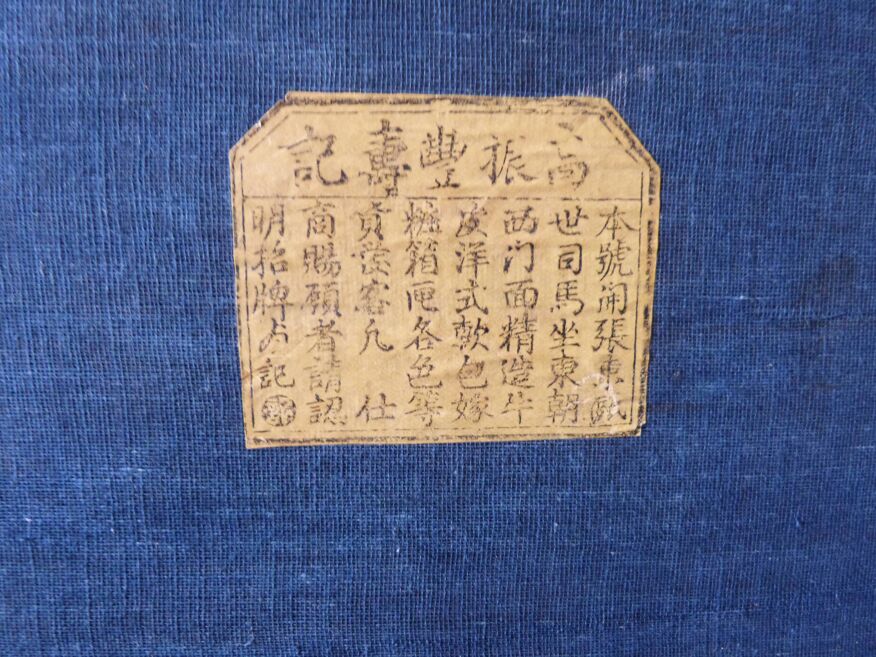 高振豐壽記
本號開張東武
世司馬坐東朝
西门面精造牛
皮洋式軟包嫁
粧箱匣各色等
貨發客凡 仕
商賜顧者請認
明招牌为記